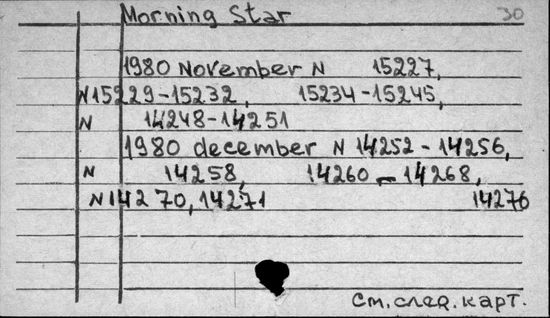 Morning Star 30
1980 November N 15227,
N15229-15232, 15234-15245,
N 14248-14251
1980 december N 14252-14256,
N 14258, 14260-14268,
N14270, 14271 14276
См. след. карт.